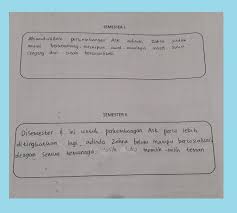 SEMESTER I
Alhamdulillah perkembangan Ask adinda Zahra sudah
mulai berkembang, walaupun awal masih
dan sudah bersosialisasi.
SEMESTER II
Disemester II ini untuk perkembangan Ask perlu lebih
ditingkatkan lagi, adinda Zahra belum mampu bersosialisasi
dengan semua temannya, memilih-milih teman